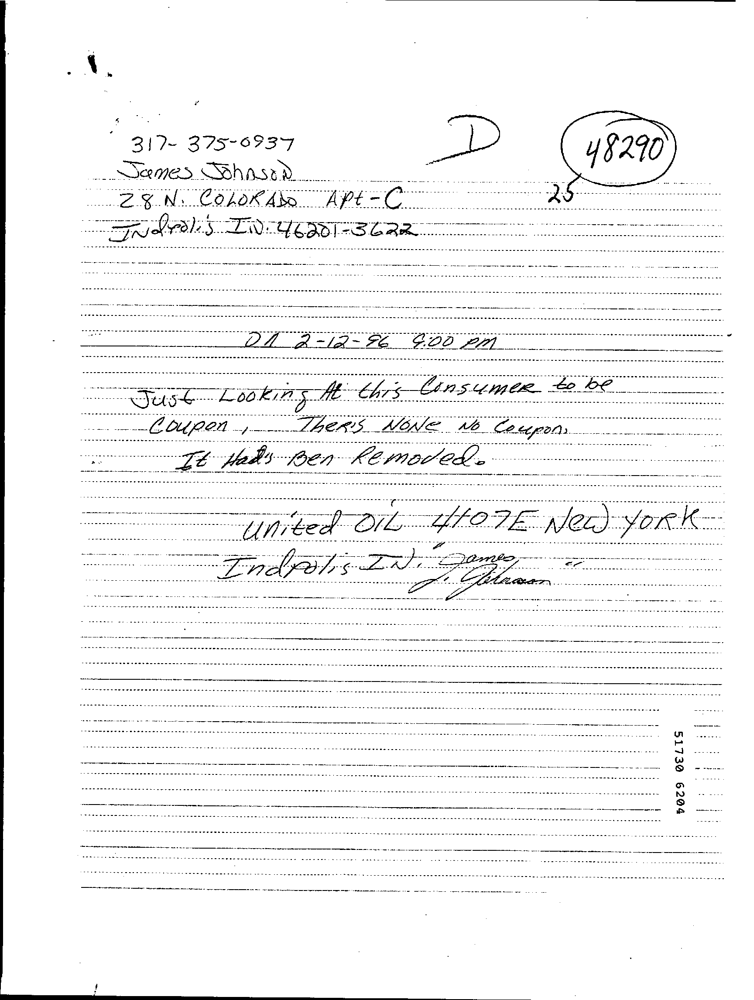 317-375-0937
D
48290
James Johnson
28 N. COLORADO APt-C
25
Indpolis IN. 46201-3622
On 2-12-96 9:00 PM
Just Looking At this Consumer to be
Coupon, Ther's None No Coupon,
It Had's Ben Removed.
United OIL 4107E New YORK
Indpolis IN. "James
J. Johnson"
51730 6204